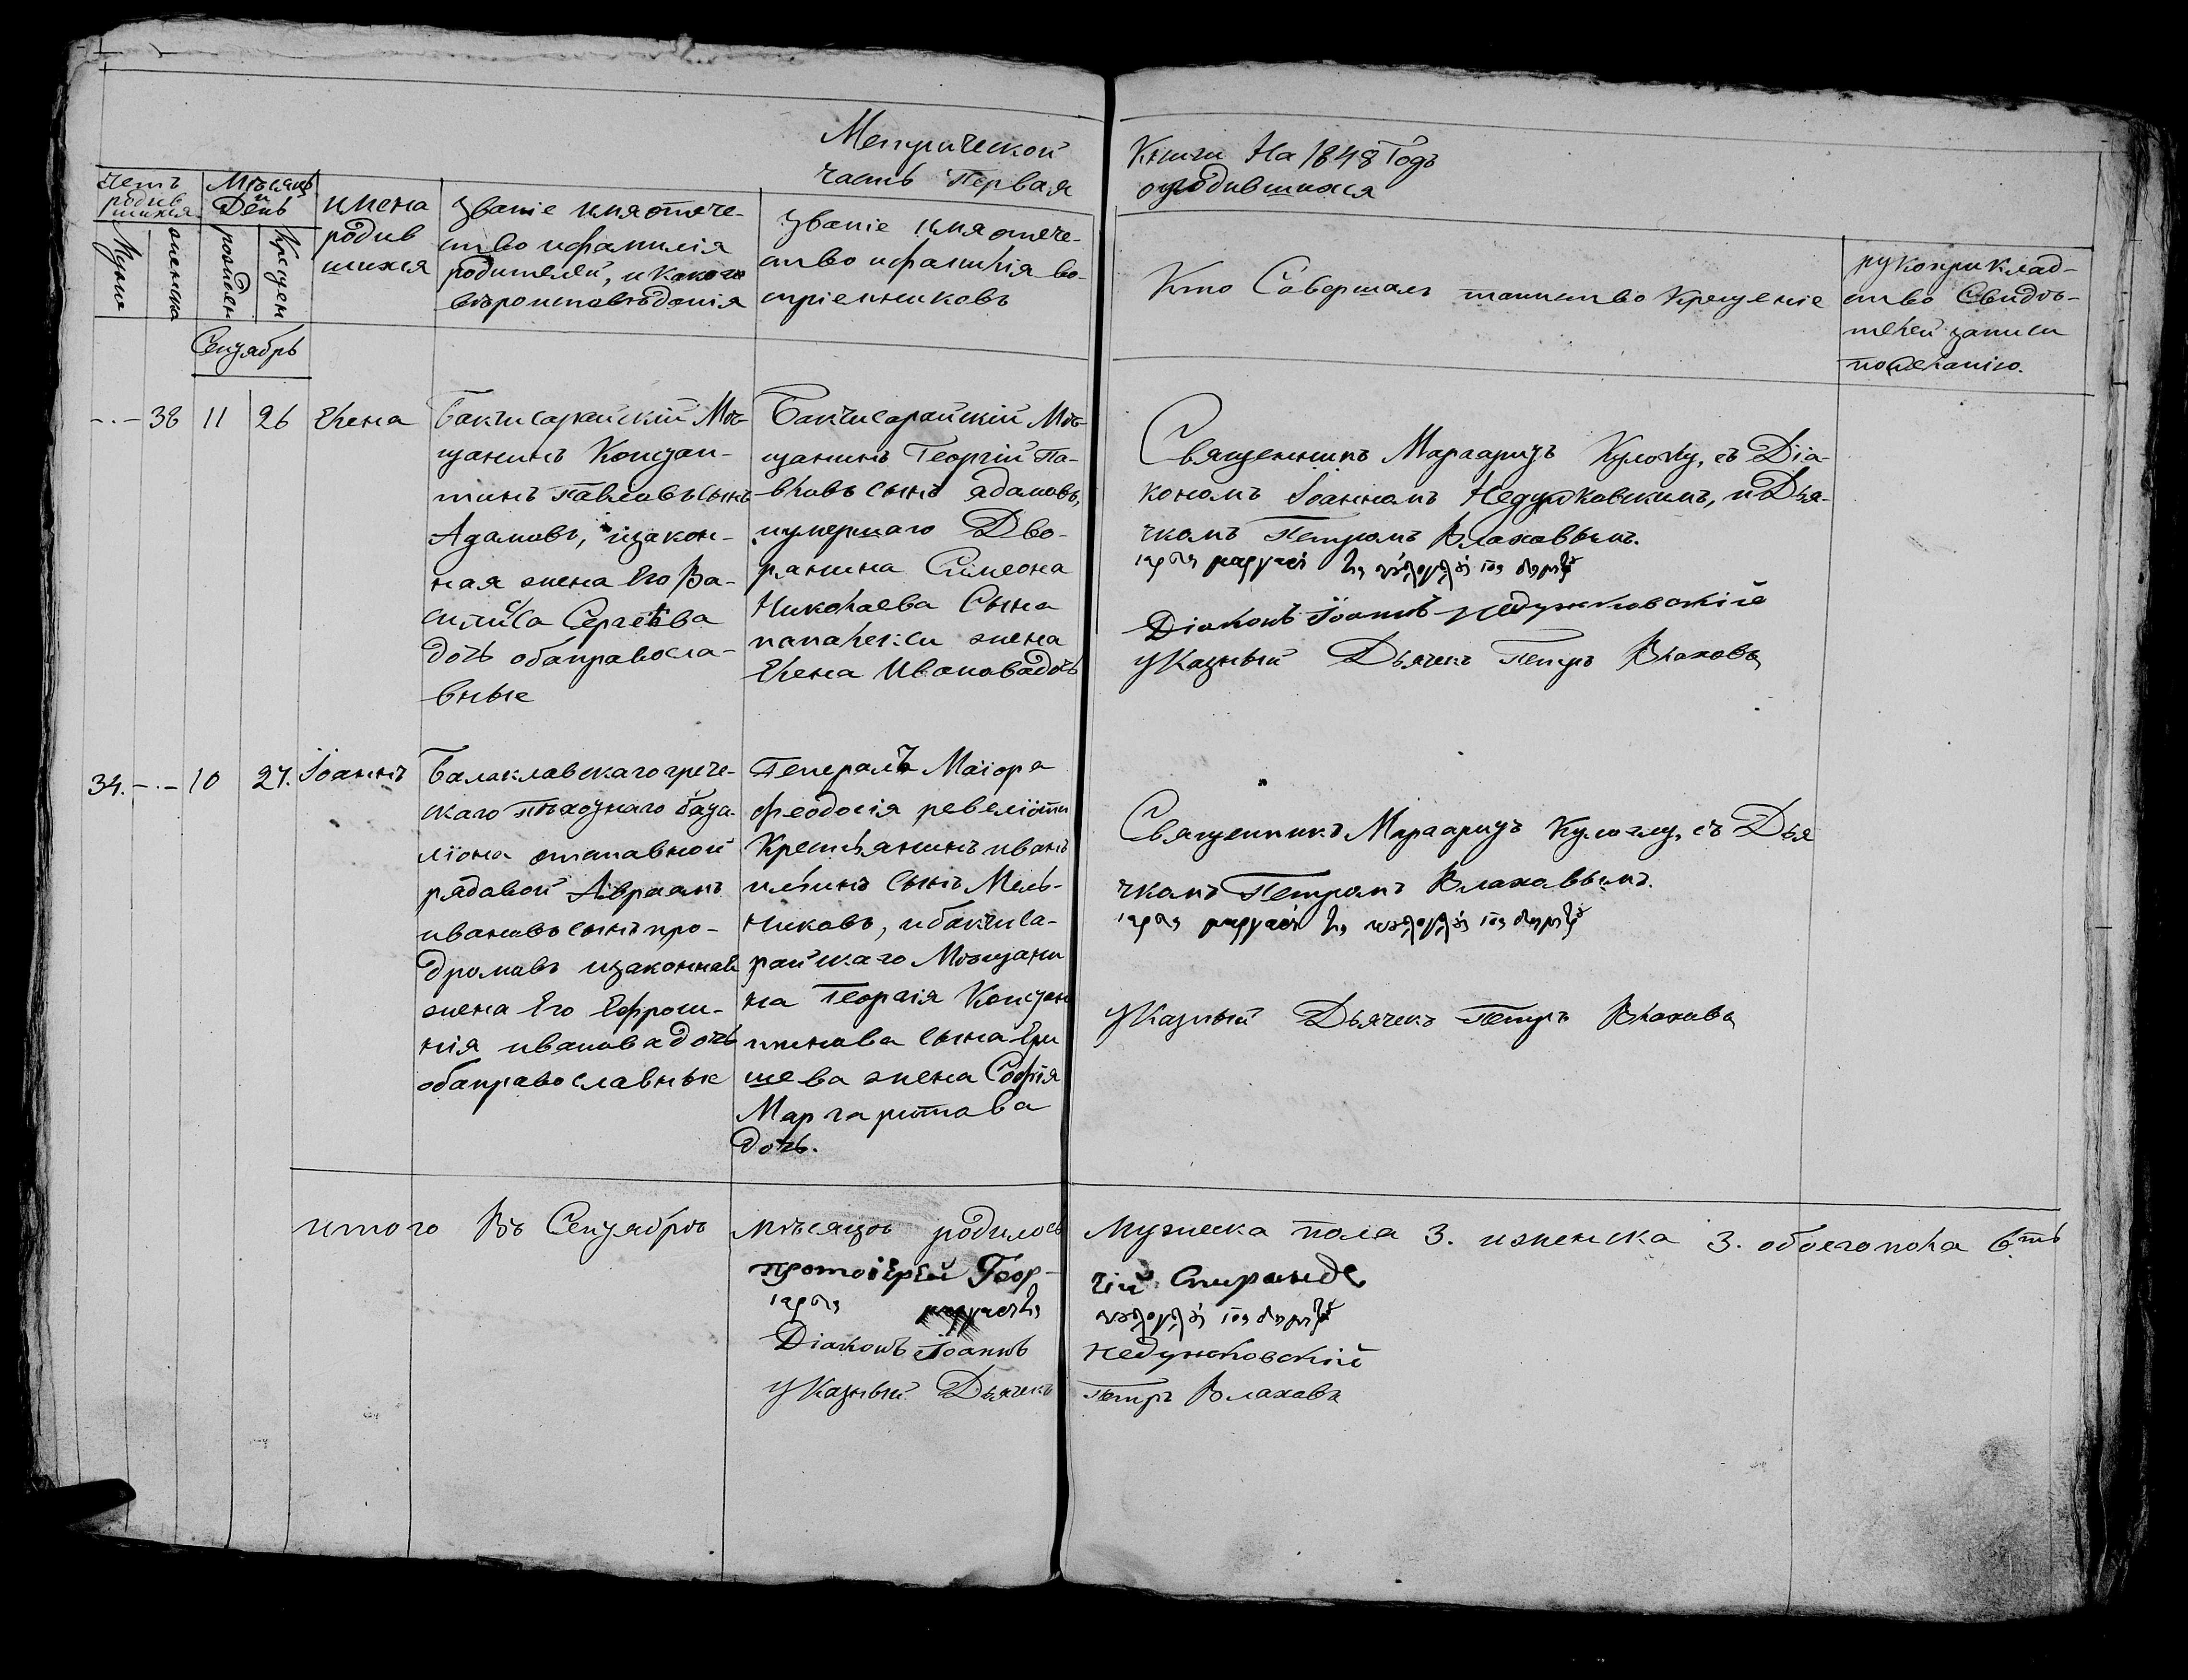 Метрической
часть Первая
Книги На 1848 Годъ
о родившихся
счетъ
родив
шихся
Мѣсяцъ
и
День
имена
родив
шихся
званіе имя отече-
ство и фамилія
родителей, и какого
вѣроисповѣданія
званіе имя отече-
ство и фамилія во-
спріемниковъ
Кто Совершалъ таинство Крещеніе
рукоприклад-
ство Свидѣ-
телей записи
по желанію.
Муже
женска
рожден
Крещен
Сентябрь
-.- 38 11 26 Елена
Бакчисарайскій Мѣ-
щанинъ Констан-
тинъ Павловъ сынъ
Адамовъ, и закон-
ная жена Его Ва-
силиса Сергеѣва
дочь оба правосла-
вные
Бакчисарайскій Мѣ-
щанинъ Георгій Па-
вловъ сынъ Адамовъ,
и умершаго Дво-
рянина Симеона
Николаева Сына
жена
Елена Иванова дочь
Священникъ Маргаритъ Кулоглу, съ Діа-
кономъ Іоанномъ Недужковскимъ, и Дья-
чкомъ Петромъ Влаховымъ.
Діаконъ Іоаннъ Недужковскій
Указный Дьячекъ Петръ Влаховъ
34. -.- 10 27. Іоаннъ
Балаклавскаго грече-
скаго пѣхотнаго бата-
ліона отставной
рядовой Авраамъ
ивановъ сынъ про-
дромовъ и законная
жена Его Ефроси-
нія иванова дочь
оба православные
Генералъ Маіора
Феодосія ревеліоти
Крестьянинъ иванъ
ильинъ сынъ Мель-
никовъ, и бакчиса-
райскаго Мѣщани
на Георгія Констан
тинова сына
жена Софія
Маргаритова
дочь.
Священникъ Маргаритъ Кулоглу, съ Дья
чкомъ Петромъ Влаховымъ.
Указный Дьячекъ Петръ Влаховъ
итого Въ Сентябрѣ мѣсяцѣ родилось Мужеска пола 3. и женска 3. обоего пола 6.ть
Протоіерей Геор-
гій Спиранде
Діаконъ Іоаннъ Недужковскій
Указный Дьячекъ Петръ Влаховъ